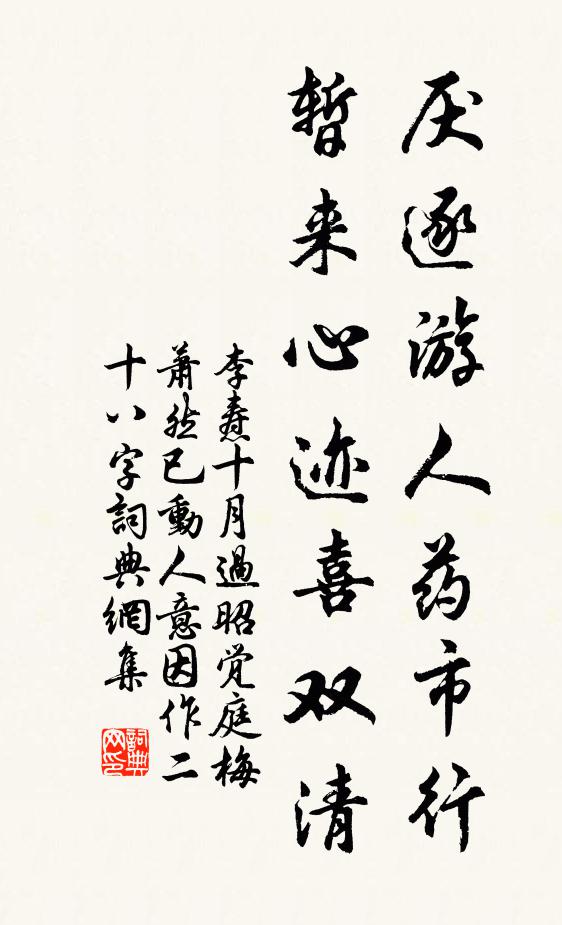 厌逐游人药市行
暫来心迹喜双清
李焘十月過昭觉庭梅
蕭然已動人意因作二
十八字詞典網集
詞典
网印